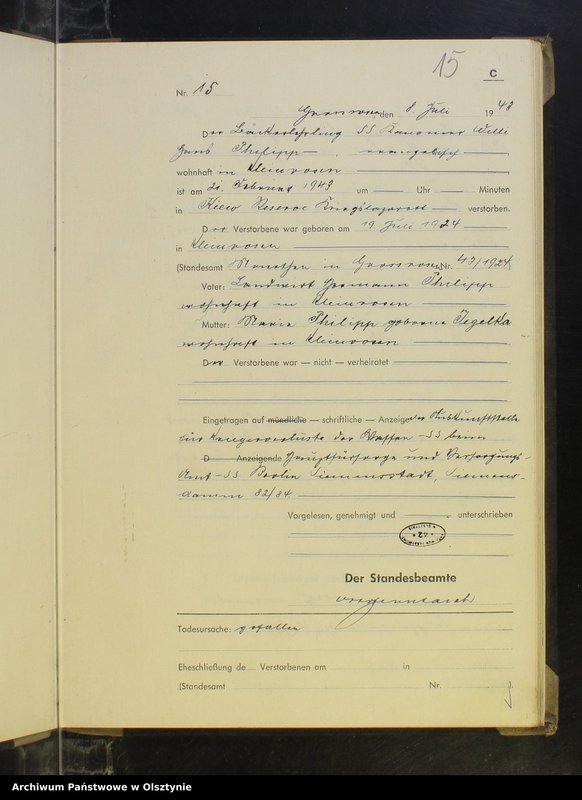 15
C
Nr. 15
Grossrosen, den 8. Juli 1943
Der Bäckerlehrling SS Kanonier Willi
Hans Philipp — , evangelisch
wohnhaft in Kleinrosen
ist am 21. Februar 1943 um Uhr Minuten
in Kiew Reserve Kriegslazarett verstorben.
Der Verstorbene war geboren am 19 Juli 1924
in Kleinrosen
(Standesamt in Grossrosen Nr. 43/1924
Vater: Landwirt Hermann Philipp
wohnhaft in Kleinrosen
Mutter: Maria Philipp geborene Jegelka
wohnhaft in Kleinrosen
Der Verstorbene war — nicht — verheiratet
Eingetragen auf mündliche — schriftliche — Anzeige der Auskunftstelle
für Kriegerverluste der Waffen-SS beim
D Anzeigende Hauptfürsorge und Versorgungs-
Amt-SS Berlin Siemensstadt, Siemens-
damm 82/84.
Vorgelesen, genehmigt und unterschrieben
Der Standesbeamte
Todesursache: gefallen
Eheschließung de Verstorbenen am in
(Standesamt Nr.
Archiwum Państwowe w Olsztynie